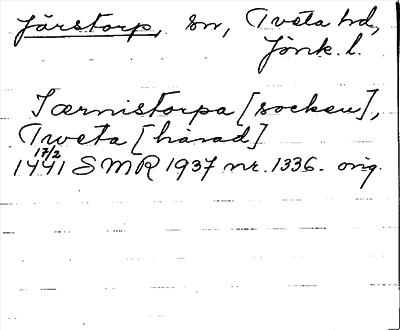 Järstorp, sn, Tveta hd,
Jönk. l.
Iærnistorpa [socken],
Tweta [härad]
17/2
1441 SMR 1937 nr. 1336. orig.